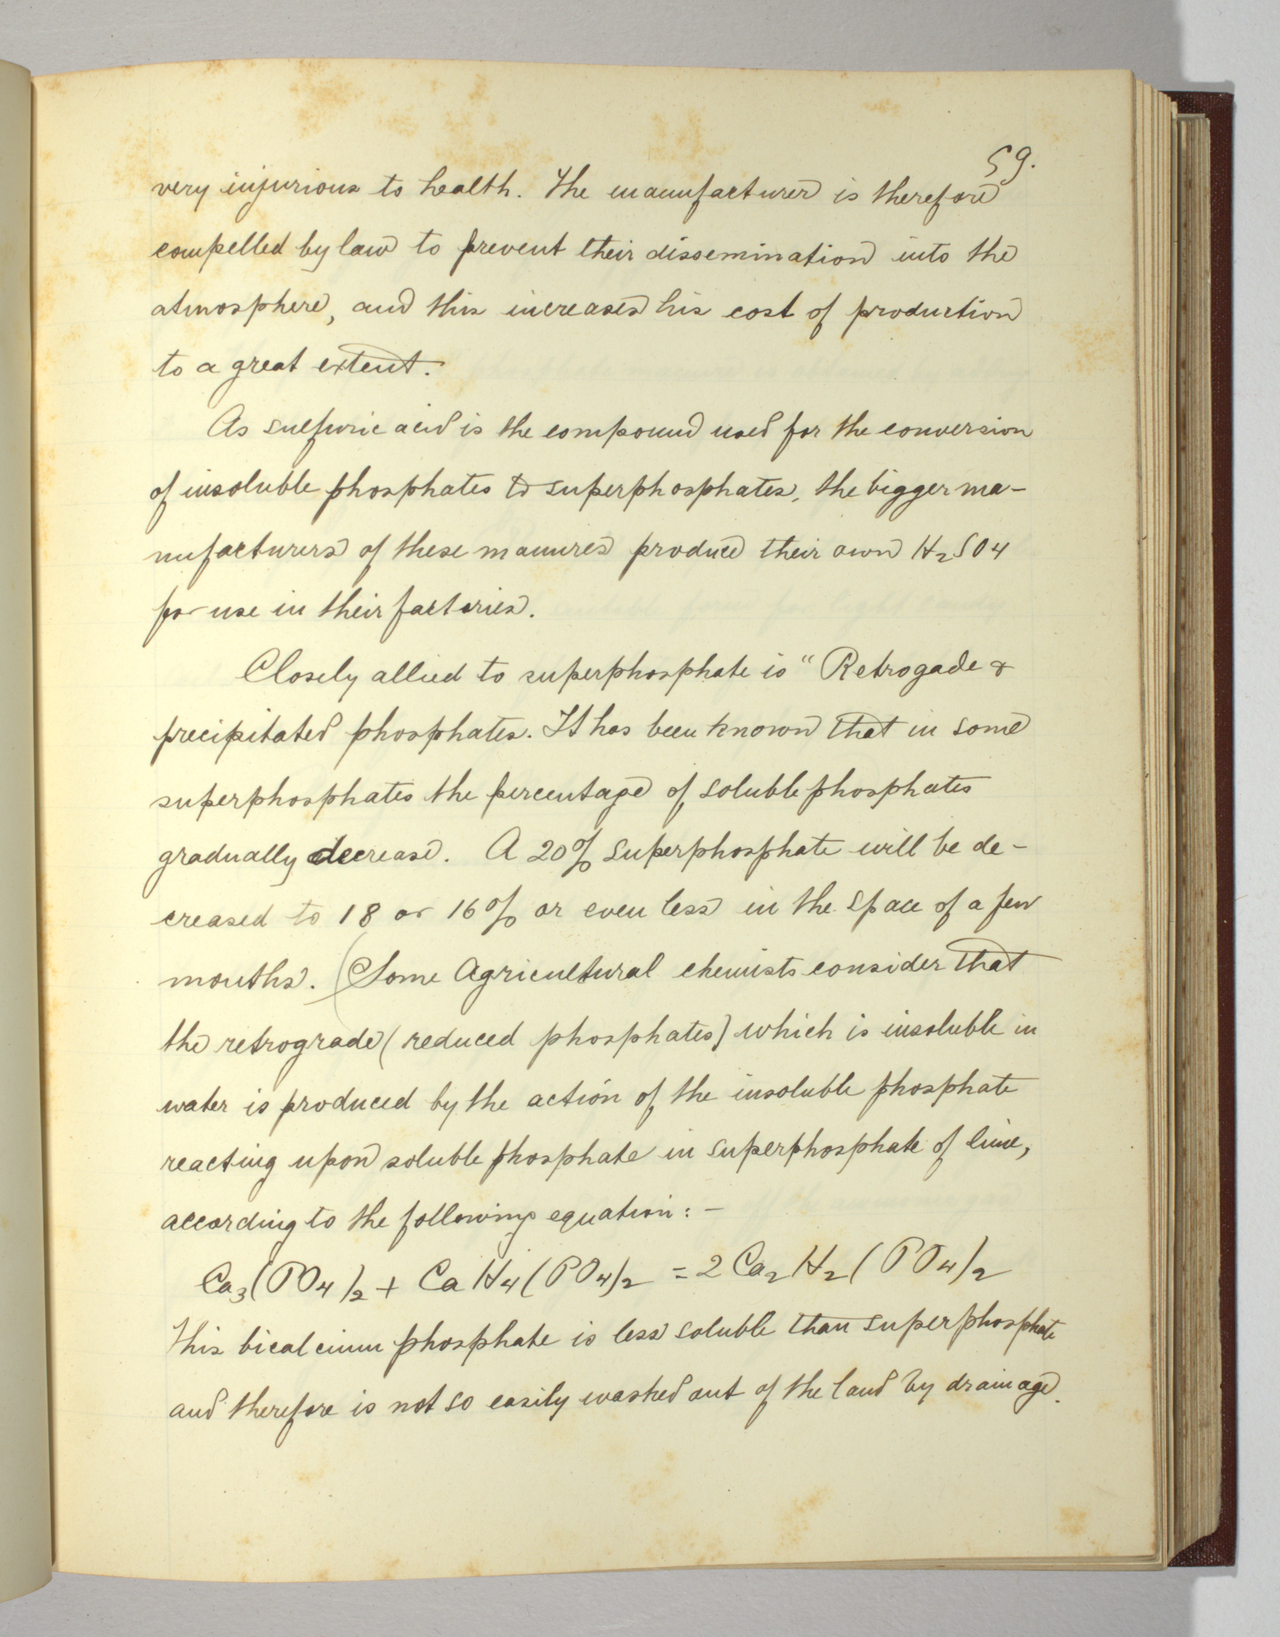 59.
very injurious to health. The manufacturer is therefore
compelled by law to prevent their dissemination into the
atmosphere, and this increases his cost of production
to a great extent.
As sulfuric acid is the compound used for the conversion
of insoluble phosphates to superphosphates, the bigger ma-
nufacturers of these manures produce their own H2SO4
for use in their factories.
Closely allied to superphosphate is "Retrogade &
precipitated phosphates. It has been known that in some
superphosphates the percentage of soluble phosphates
gradually decrease. A 20% superphosphate will be de-
creased to 18 or 16% or even less in the space of a few
months. (Some Agricultural chemists consider that
the retrograde (reduced phosphates) which is insoluble in
water is produced by the action of the insoluble phosphate
reacting upon soluble phosphate in superphosphate of lime,
according to the following equation: -
Ca3(PO4)2 + CaH4(PO4)2 = 2Ca2H2(PO4)2
This bicalcium phosphate is less soluble than superphosphate
and therefore is not so easily washed out of the land by drainage.